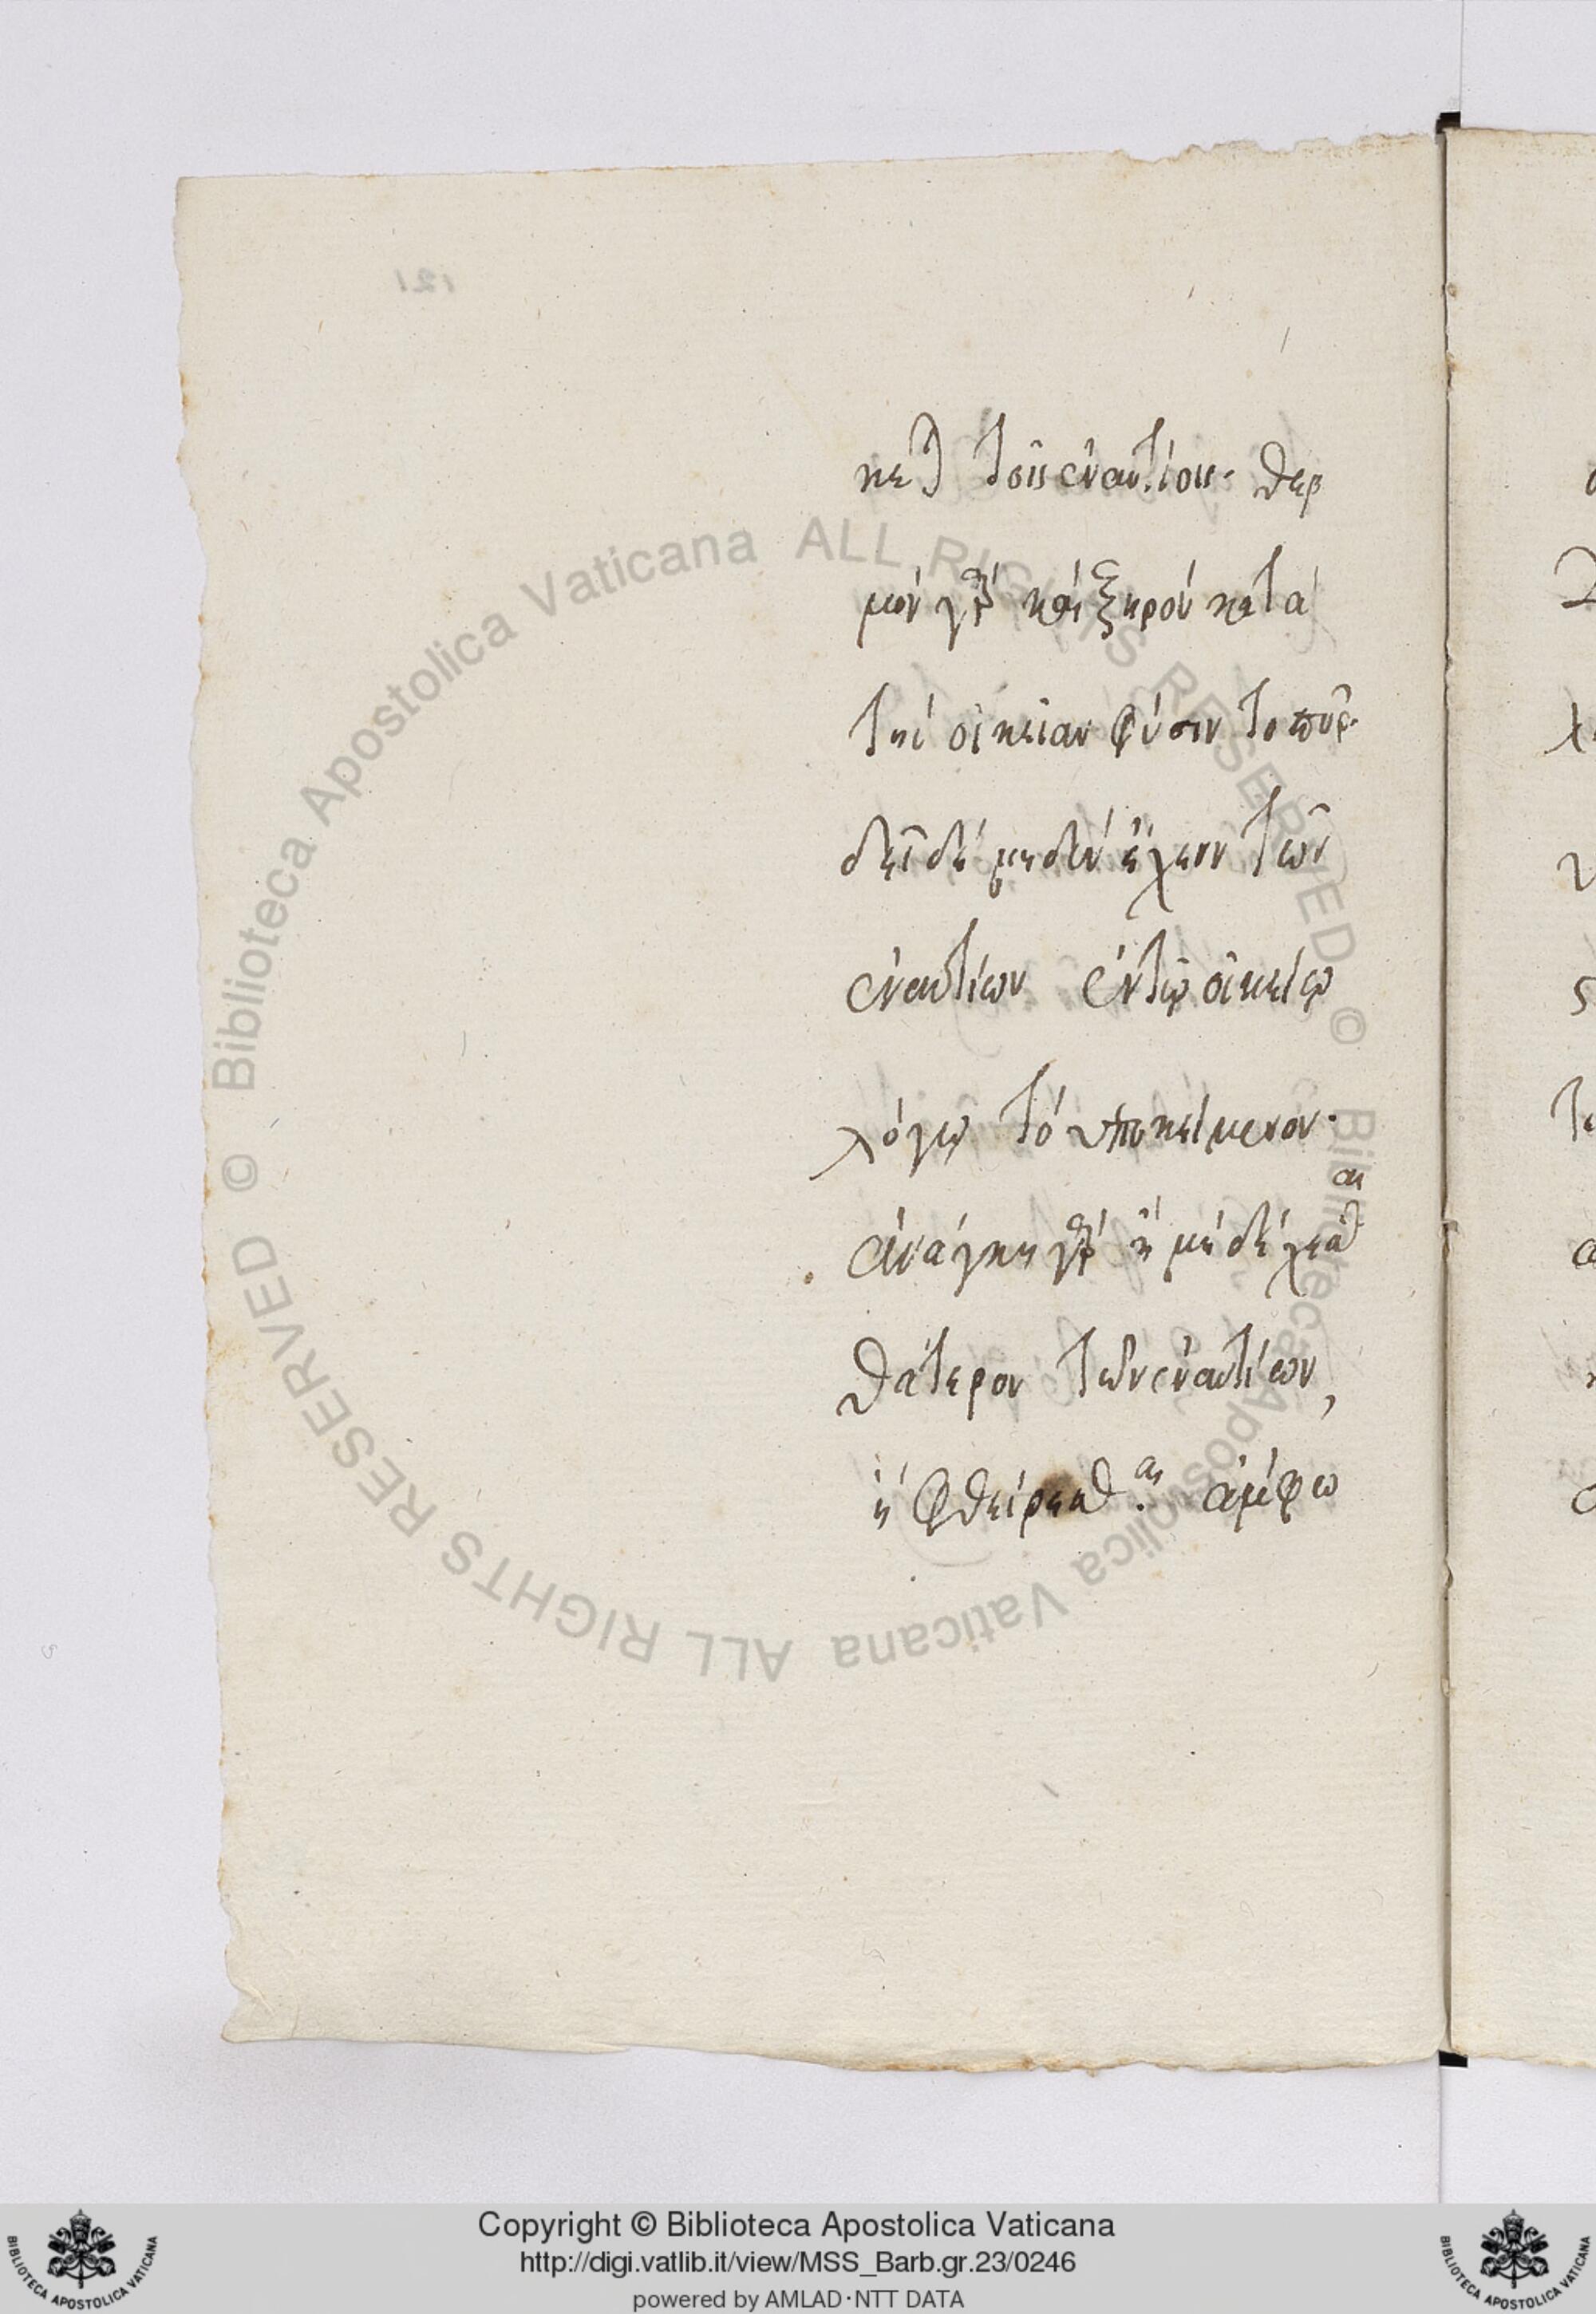 κεῖται τοῖς ἐναντίοις· θερ
μὸν γὰρ καὶ ξηρὸν κατὰ
τὴν οἰκείαν φύσιν τὸ πῦρ·
δεῖ δὲ μηδὲν ἔχειν τῶν
ἐναντίων ἐν τῷ οἰκείῳ
λόγῳ τὸ ὑποκείμενον·
ἀνάγκη γὰρ ἢ μὴ δέχεσθαι
θάτερον τῶν ἐναντίων,
ἢ φθείρεσθαι ἄμφω
© Biblioteca Apostolica Vaticana ALL RIGHTS RESERVED © Biblioteca Apostolica Vaticana ALL RIGHTS RESERVED
Copyright © Biblioteca Apostolica Vaticana
http://digi.vatlib.it/view/MSS_Barb.gr.23/0246
powered by AMLAD·NTT DATA
BIBLIOTECA APOSTOLICA VATICANA
BIBLIOTECA APOSTOLICA VATICANA